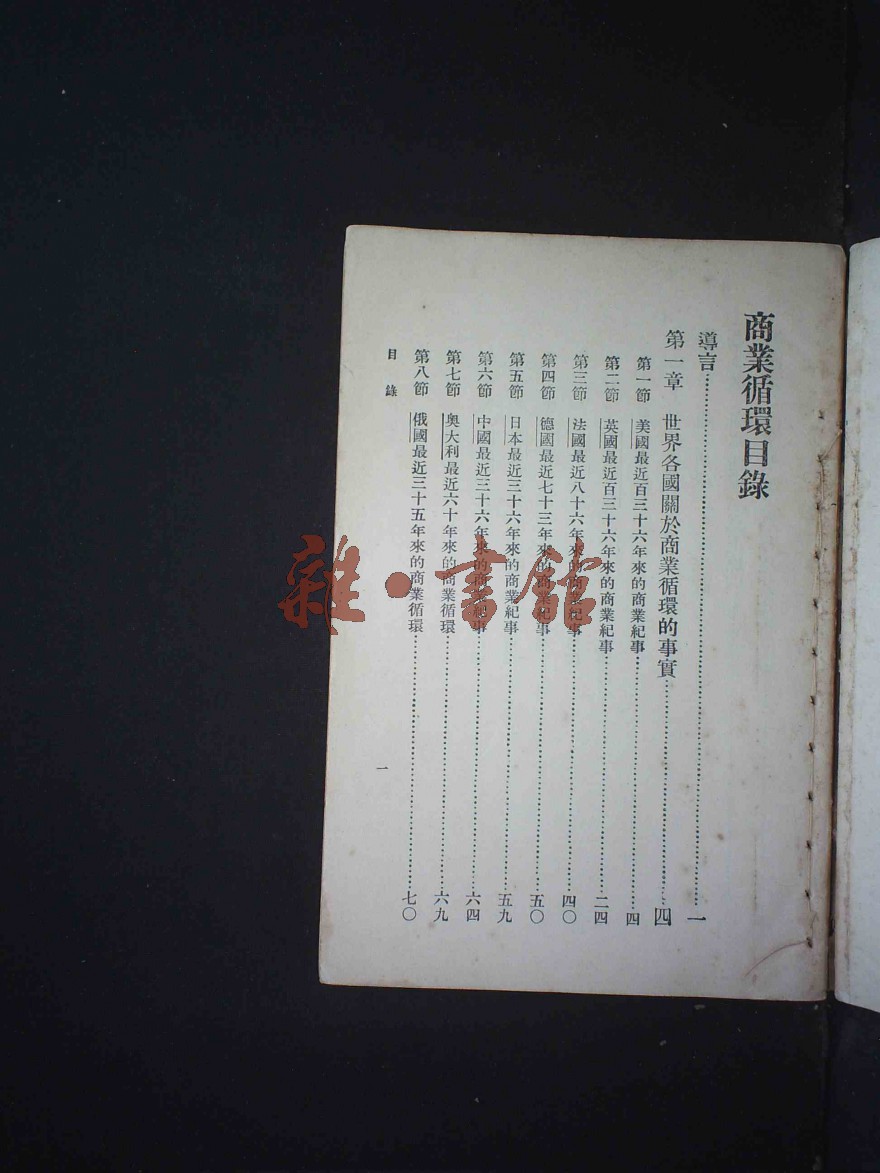 商業循環目錄
導言……一
第一章　世界各國關於商業循環的事實……四
第一節　美國最近百三十六年來的商業紀事……四
第二節　英國最近百三十六年來的商業紀事……二四
第三節　法國最近八十六年來的商業紀事……四〇
第四節　德國最近七十三年來的商業紀事……五〇
第五節　日本最近三十六年來的商業紀事……五九
第六節　中國最近三十六年來的商業紀事……六四
第七節　奧大利最近六十年來的商業循環……六九
第八節　俄國最近三十五年來的商業循環……七〇
目錄　一
雜·書館